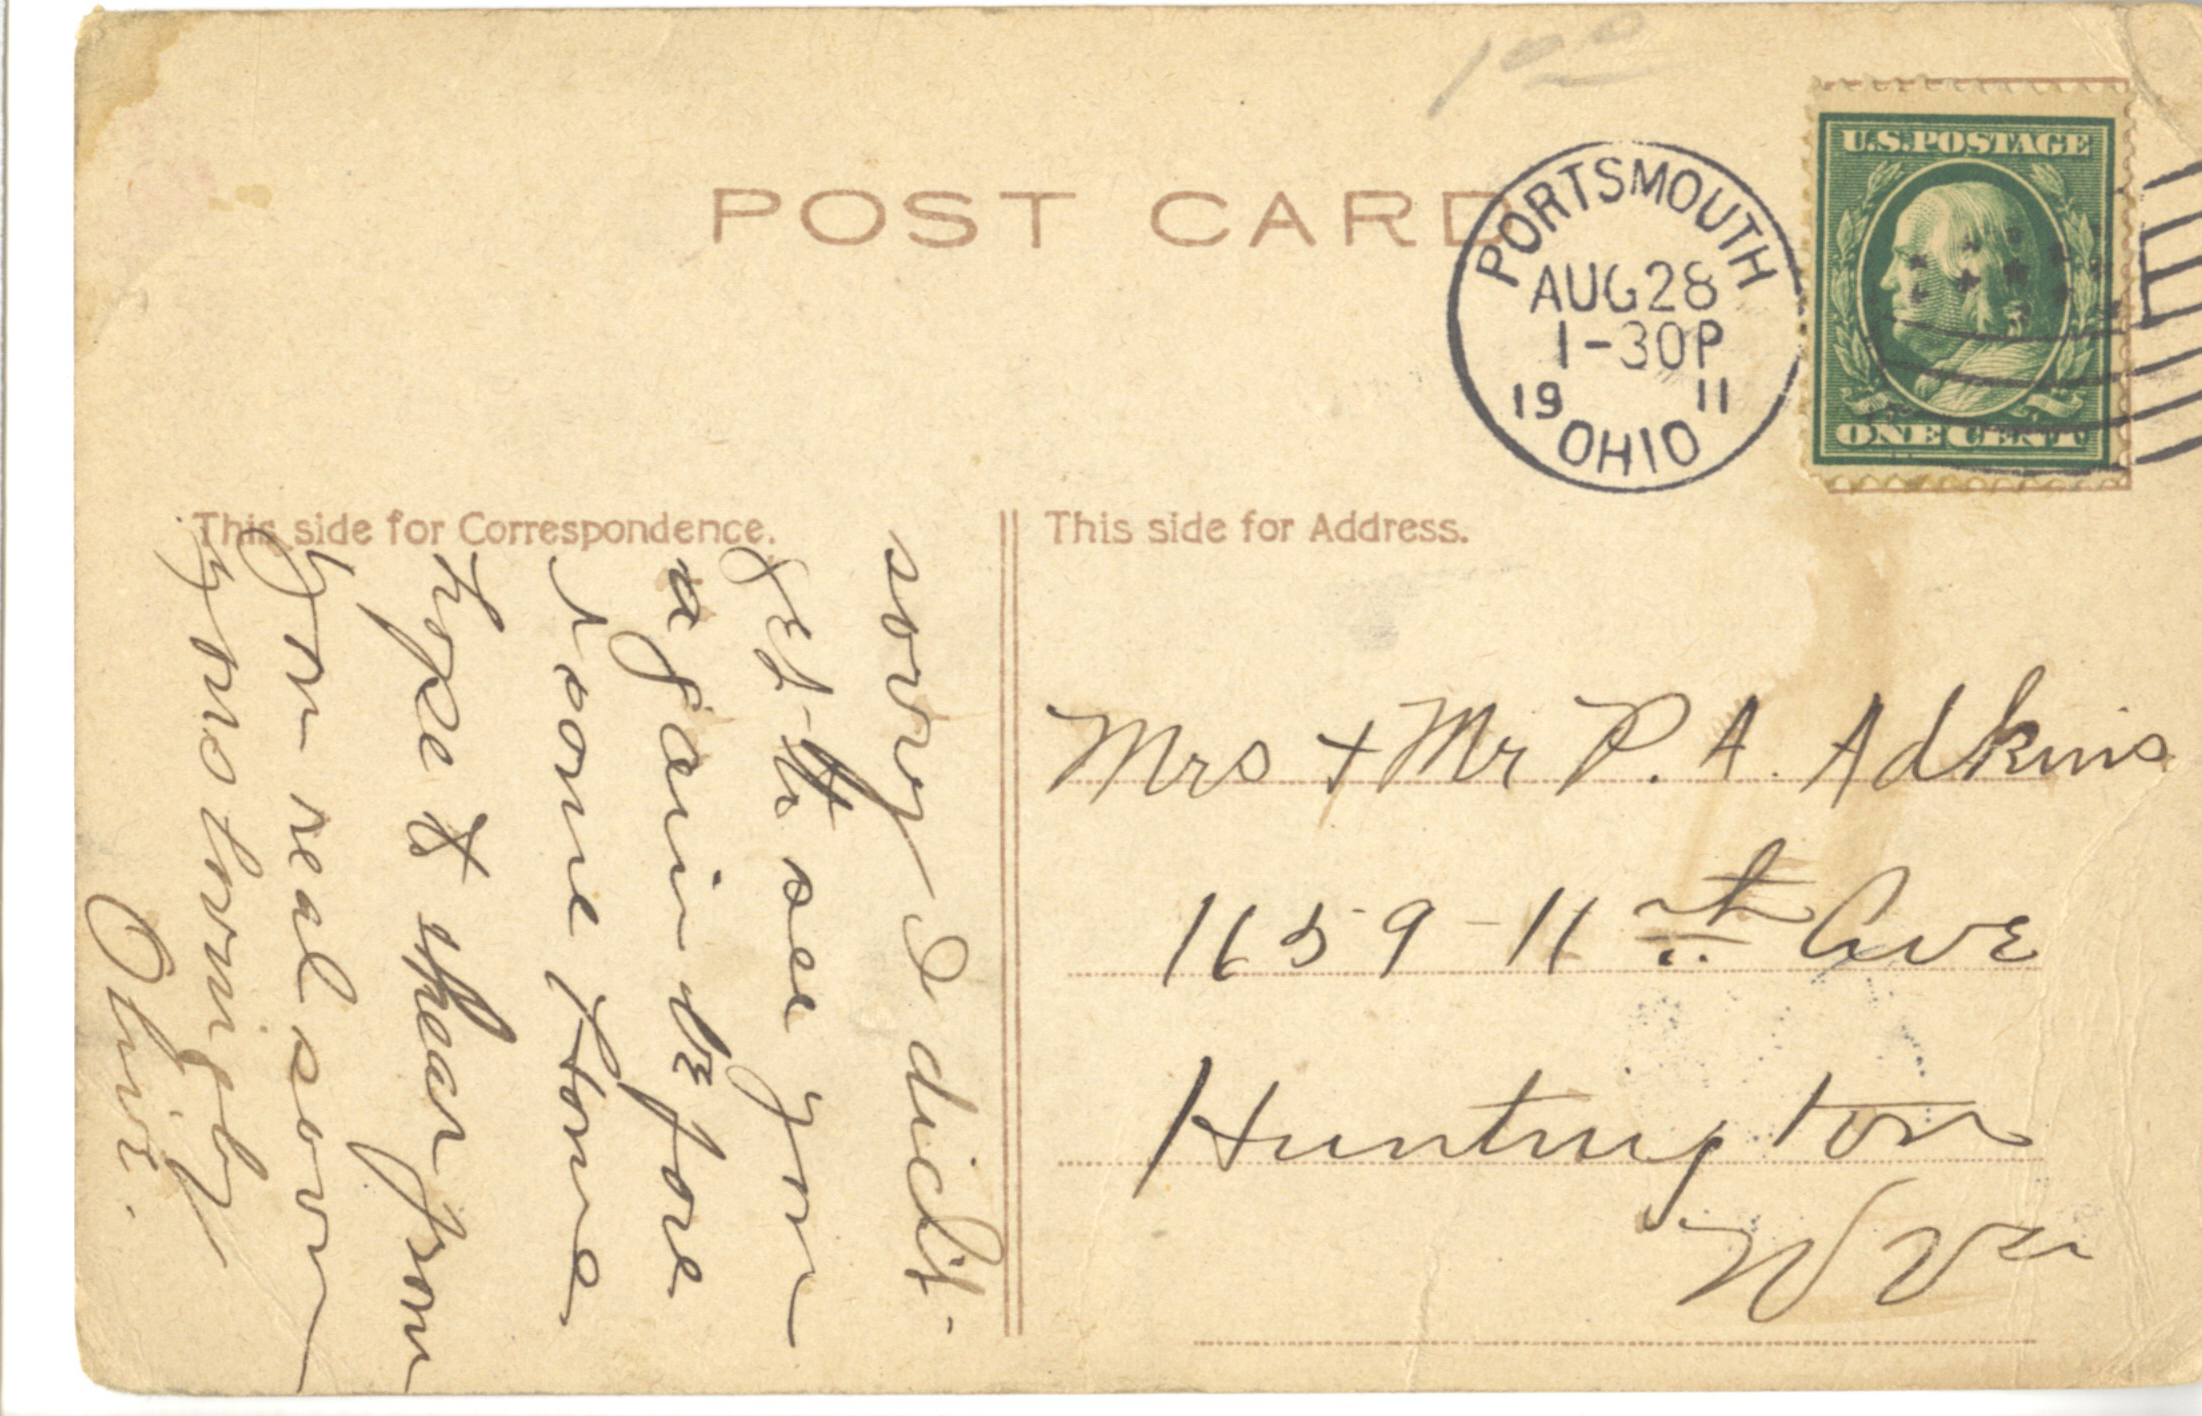 1 00
POST CARD
PORTSMOUTH
AUG 28
1-30P
19 11
OHIO
U.S.POSTAGE
ONE CENT
This side for Correspondence.
sorry I didt-
get to see you
again before
I come Home
hope to hear from
you real soon
lovingly
Olive.
This side for Address.
Mrs + Mr P. A. Adkins
1659 - 11th Ave
Huntington
W Va